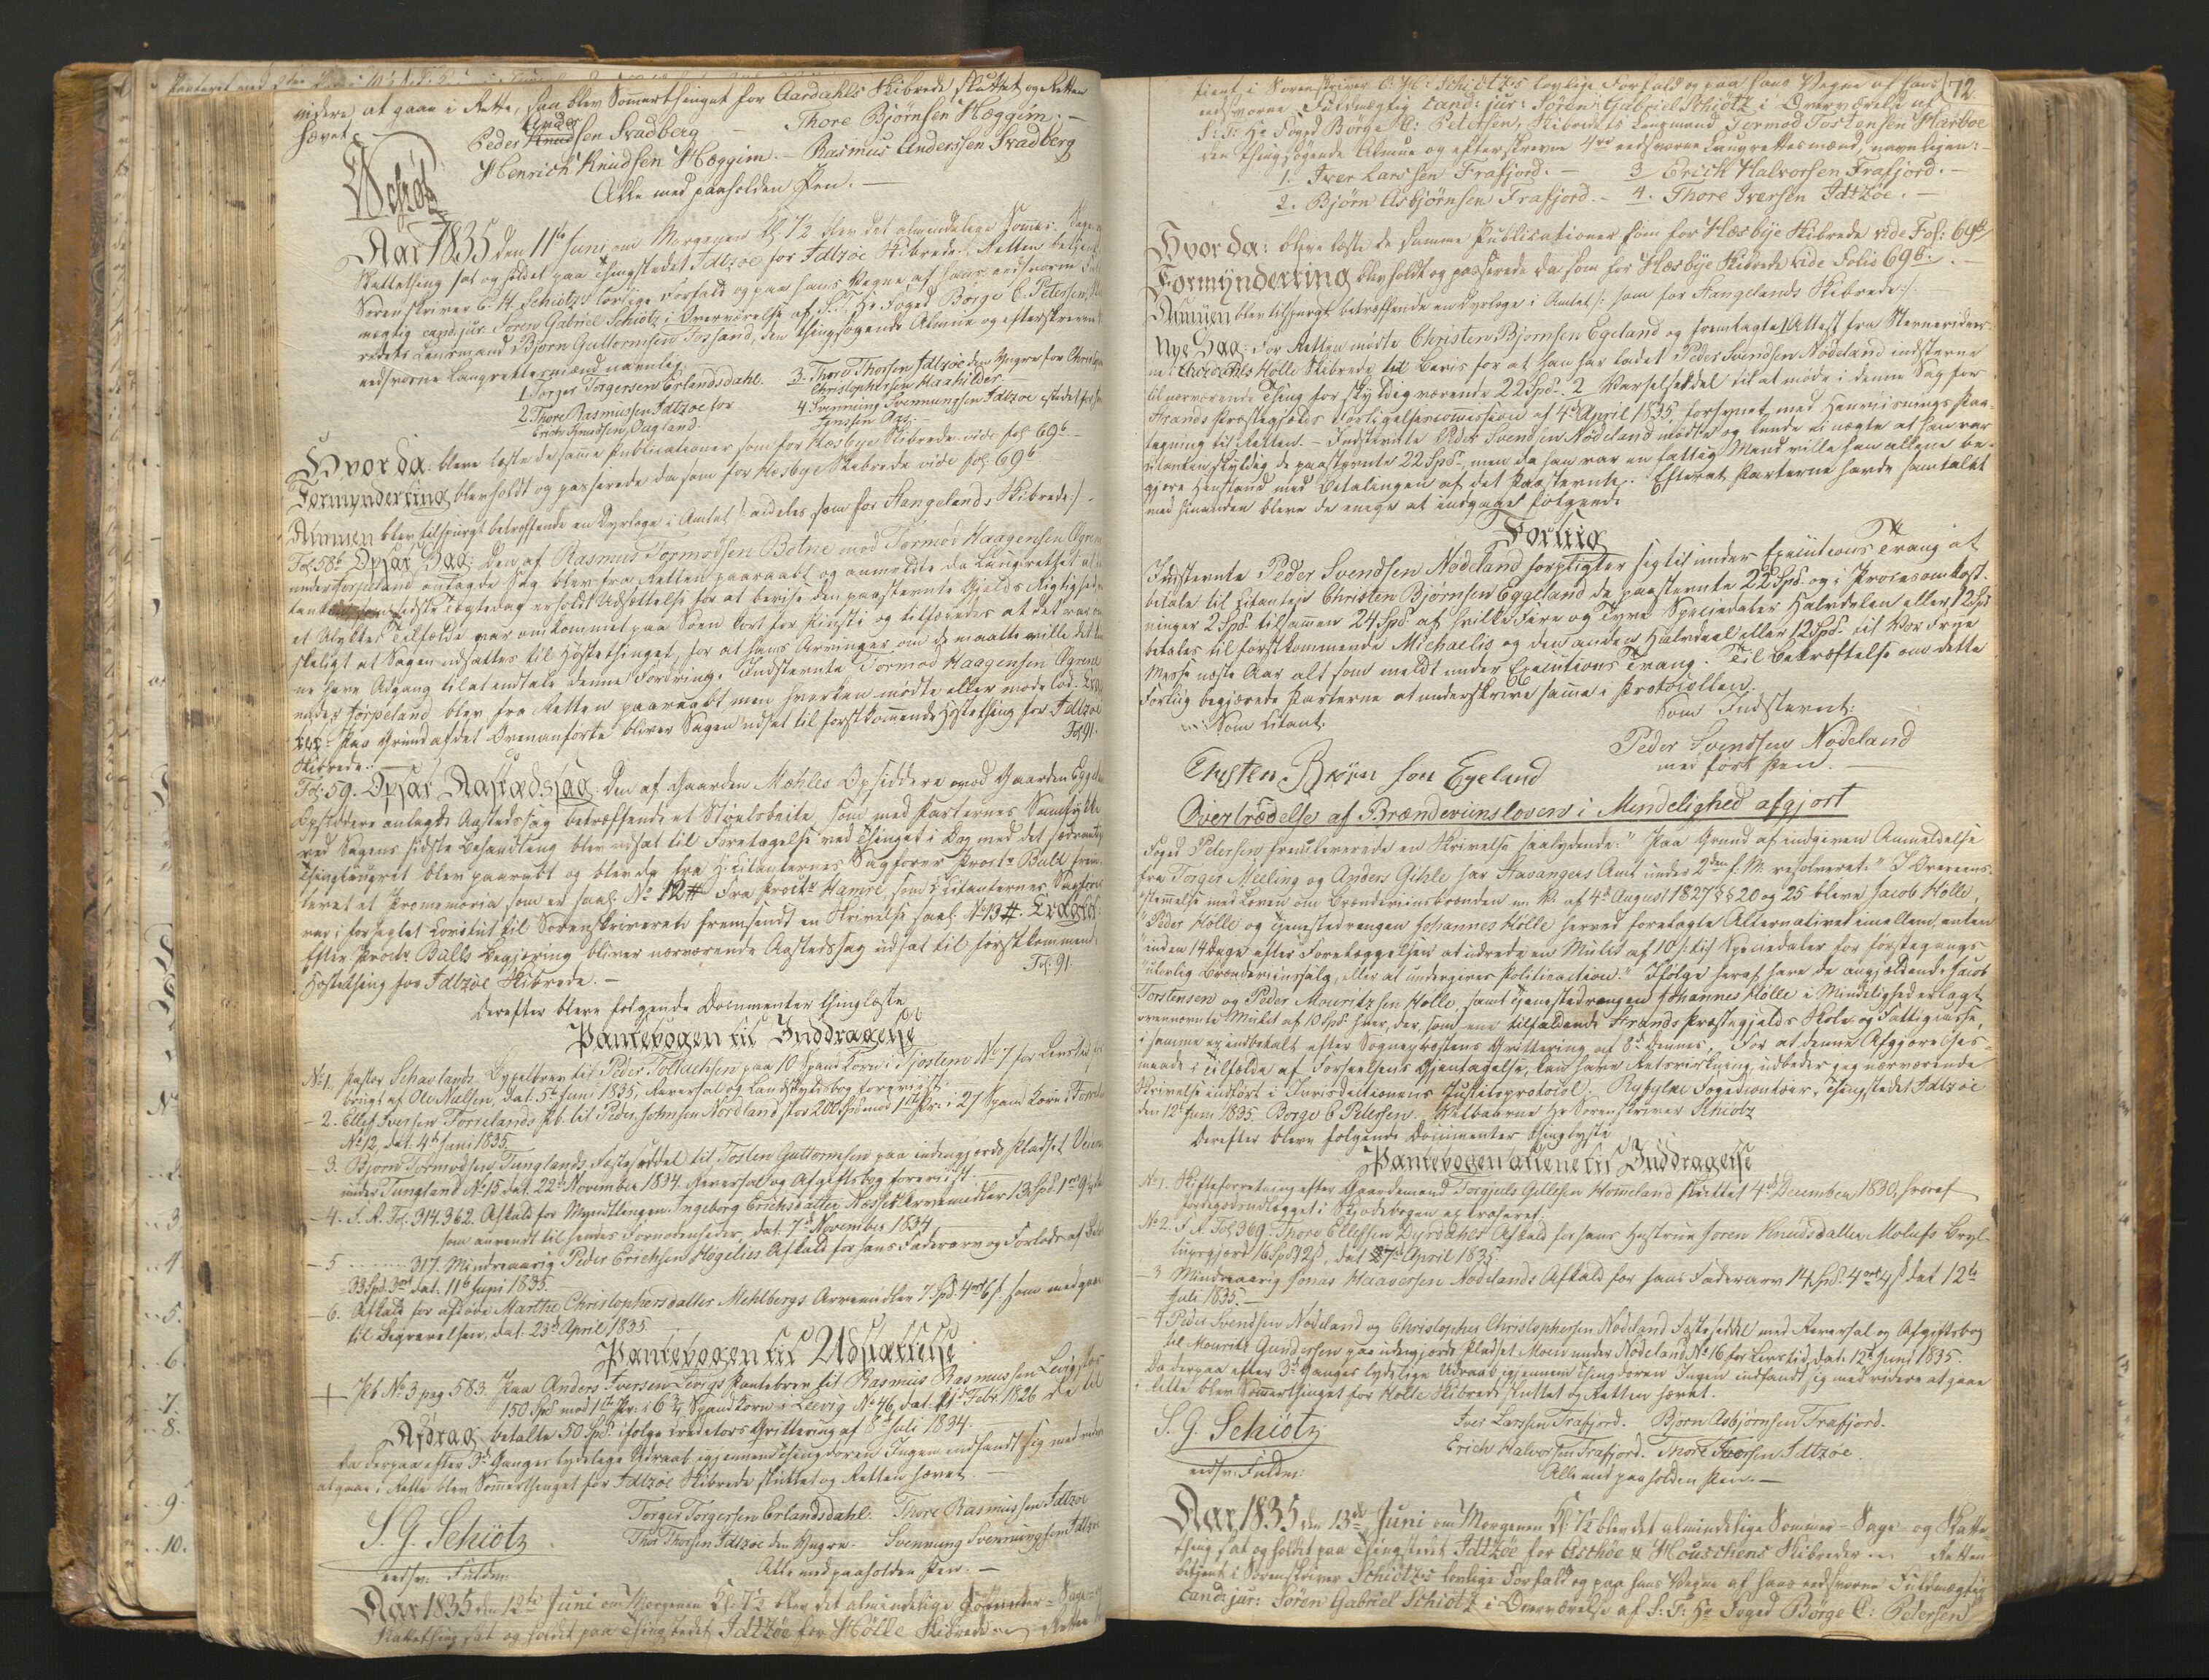 videre at gaae i Rette, saa blev Sommerthinget for Aardahls Skibrede sluttet og Retten
hævet.
Peder Knudsen Svadberg. — Thore Bjørnsen Hæggim. —
Ander
Henrich Knudsen Hæggim. — Rasmus Anderssen Svadberg
Alle med paaholden Pen. —
Schiøtz
Aar 1835 den 11te Juni om Morgenen Kl. 7½ blev det almindelige Sommer- Sage-
Skattething sat og holdet paa Thingstedet Idtzøe for Idtzøe Skibrede. Retten betjent
Sorenskriver C. H. Schiøtz's lovlige Forfald og paa hans Vegne af hans eedsvorne Fuld-
mægtig cand: jur: Søren Gabriel Schiøtz i Overværelse af S. T. Hr Foged Børge C. Petersen, Ski-
redets Lensmand Bjørn Guttormsen Fossand, den thingsøgende Almue og efterskrevne
eedsvorne Laugrettesmænd navnlig:
1. Torger Torgersen Erlandsdahl. 3. Thore Thorsen Idtzøe den Yngre for
Christophersen Haahilder
2. Thore Rasmussen Idtzøe for 4. Svenning Svenningsen Idtzøe istedet for
Erich Knudsen Øugland.
Hvorda: bleve læste de samme Publicationer som for Hæsbye Skibrede vide fol. 69b
Formynderting blev holdt og passerede da som for Hesbye Skibrede vide fol. 69b
Almuen blev tilspurgt betræffende en Dyrlæge i Amtet /: aldeles som for Hangelands Skibrede :/.
Fol. 58b Opsat Sag: Den af Rasmus Tormodsen Botne mod Tormod Haagensen Øgrene
under Jørpeland anlagde Sag blev fra Retten paaraabt og anmeldte da Laugrettet at
sidste Tægtedag erholdt Udsættelse for at bevise den paastevnte Gjelds Rigtighed,
et ulykkes Tilfælde var omkommet paa Søen kort før Pintsti og tilføiedes at det var
skeligt at Sagen udsattes til Høstethinget, for at hans Arvinger om de maatte ville det
ne have Adgang til at indtale denne Fordring. Indstevnte Tormod Haagensen Øgrene
under Jørpeland blev fra Retten paaraabt men hverken mødte eller møde lod.
Paa Grund af det Ovenanførte bliver Sagen udsat til førstkommende Høstething for Idtzøe
Skibrede. — Fol. 91.
Fol. 59. Opsat Aastædssag: Den af Gaarden Mæhles Opsiddere mod Gaarden
Opsiddere anlagte Aastedssag betræffende et Støelsbeite, som med Parternes Samtykke
ved Sagens sidste Behandling blev udsat til Foretagelse ved Thinget i Dag med det
Thinglaugret blev paaraabt og blev da fra H. Citanternes Sagfører Procr Bull frem-
leveret et Promemoria som er saal: No 12 #. Fra Procr Hamre som Citanternes Sagfører
var i forseglet Convolut til Sorenskriveren fremsendt en Skrivelse saal: No 13 #. Eragtet
Efter Procr Bulls Begjæring bliver nærværende Aastedssag udsat til førstkommende
Høstething for Idtzøe Skibrede. — Fol. 91.
Derefter bleve følgende Documenter thinglæste
Pantebogen til Inddragelse
No 1. Pastor Schaelands Bygselbrev til Peder Tollachsen paa 10 Spand Korn i Tjøstem No 7 for Levetid
brugt af Ole Nielsen, dat. 5te Juni 1835, Reversal og Landskyldsbog foreviist.
— 2. Ellef Iversen Førrelands Pb. til Peder Johnsen Nordland stor 200 Spd mod 1ste Pr. i 27 Spand Korn i
No 12, dat. 4de Juni 1835.
— 3. Bjørn Tormodsen Tunglands Fæstesæddel til Tosten Guttormsen paa indengjærds Pladset
under Tungland No 15, dat. 22de November 1834. Reversal og Afgiftsbog foreviist.
— 4. S. A. Fol. 314. 362. Afkald for Myndlingen Ingeborg Erichsdatter Næsses Arvemidler 13 Spd 1 ort
som anvendt til hendes Fornødenheder, dat. 7de November 1834.
— 5. 317. Mindreaarig Peder Erichsen Høgelies Afkald for hans Faderarv og Forlods af
33 Spd 3 ort dat. 11te Juni 1835.
— 6. Afkald for afdøde Marthe Christophersdatter Mehlbergs Arvemidler 7 Spd 4 ort 6 s. som medgaaet
til Begravelsen, dat. 23de April 1835.
Pantebogen til Udslættelse
+ Pb No 3 pag 583. Paa Anders Iversen Levigs Pantebrev til Rasmus Rasmussen Levig stor
150 Spd mod 1ste Pr. i 6¼ Spand Korn i Leevig No 46, dat. Febr. 1826 er til
Afdrag betalte 50 Spd. ifølge Creditors Qvittering af 8de Juli 1834.
Da derpaa efter 3de Ganges lydelige Udraab igjennem Thingdøren Ingen indfandt sig med videre
at gaae i Rette blev Sommerthinget for Idtzøe Skibrede sluttet og Retten hævet.
S. G. Schiøtz Torger Torgersen Erlandsdahl. Thore Rasmussen Idtzøe
eedsv: Fuldm: Thor Thorsen Idtzøe den Yngre. Svennung Svenningsen Idtzøe
Alle med paaholden Pen. —
Aar 1835 den 12te Juni om Morgenen Kl. 7½ blev det almindelige Sommer- Sage-
Skattething sat og holdet paa Thingstedet Idtzøe for Hølle Skibrede. Retten
72.
tient i Sorenskriver C: H: Schiøtz's lovlige Forfald og paa hans Vegne af hans
eedsvorne Fuldmægtig cand: jur: Søren Gabriel Schiøtz i Overværelse af
S: T: Hr Foged Børge C: Petersen, Skibredets Lensmand Tormod Tostensen Harboe
den thingsøgende Almue og efterskrevne 4re eedsvorne Laugrettesmænd, navnligen: —
1. Iver Larssen Frafjord. — 3 Erich Halvorsen Frafjord. —
2. Bjørn Asbjørnsen Frafjord. — 4. Thore Iversen Idtzøe. —
Hvorda: bleve læste de samme Publicationer som for Hæsbye Skibrede vide Fol: 69b.
Formynderting blev holdt og passerede da som for Hæsbye Skibrede vide Folio 69b. —
Almuen blev tilspurgt betræffende en Dyrlæge i Amtet /: som for Hangelands Skibrede :/.
Nye Sag: For Retten mødte Christen Bjørnsen Egeland og fremlagte 1 Attest fra Stevnevidner-
ne i Hølle Skibrede til Beviis for at han har ladet Peder Svendsen Nødeland indstevne
til nærværende Thing for skyldigværende 22 Spd. 2 Varselseddel til at møde i denne Sag for
Strands Præstegjelds Forligelsescommission af 4de April 1835 forsynet med Henviisnings Paa-
tegning til Retten. — Indstevnte Peder Svendsen Nødeland mødte og kunde ei nægte at han var
Citanten skyldig de paastevnte 22 Spd., men da han var en fattig Mand ville han allene be-
gjære Henstand med Betalingen af det Paastevnte. Efterat Parterne havde samtalet
med hinanden bleve de enige at indgaae følgende
Forliig
Indstevnte Peder Svendsen Nødeland forpligter sig til under Executions Tvang at
betale til Citanten Christen Bjørnsen Eggeland de paastevnte 22 Spd. og i Procesomkost-
ninger 2 Spd. tilsammen 24 Spd. af hvilke Fire og Tyve Speciedaler Halvdelen eller 12 Spd
betales til førstkommende Michaelis og den anden Halvdeel eller 12 Spd. til Vor Frue
Messe næste Aar alt som meldt under Executions Tvang. Til Bekræftelse om dette
Forliig begjærede Parterne at underskrive samme i Protocollen.
Som Citant: Som Indstevnt:
Peder Svendsen Nødeland
Chrsten Biørn søn Egeland med ført Pen. —
Overtrædelse af Brændeviinsloven i Mindelighed afgjort
Foged Petersen fremleverede en Skrivelse saalydende: "Paa Grund af indgiven Anmeldelse
fra Torger Meeling og Anders Gihle har Stavangers Amt under 2den f. M. resolveret: "I Overeens-
"stemmelse med Loven om Brændeviinsbrænden m. V. af 4de August 1827 §§ 20 og 25 bleve Jacob Hølle,
"Peder Hølle og Tjenestedrengen Johannes Hølle herved foretagte Alternativet imellem, enten
"inden 14 Dage efter Forelæggelsen at udrede en Mulct af 10 /: ti :/ Speciedaler for førstegangs
"ulovlig Brændeviinssalg, eller at undergives Politieaction." Ifølge heraf have de angjældende Jacob
Torstensen og Peder Mouritzsen Hølle, samt Tjenestedrengen Johannes Hølle i Mindelighed erlagt
ovennævnte Mulct af 10 Spd. hver, der, som ene tilfaldende Strands Præstegjelds Skole og Fattigcasse,
i samme er indbetalt efter Sognepræstens Qvittering af 8de dennes. For at denne Afgjørelses-
maade i Tilfælde af Forseelsens Gjentagelse, kan have Retsvirkning, udbeder jeg nærværende
Skrivelse indført i Jurisdictionens Justitsprotocol. Ryfylke Fogedcontoir, Thingstedet Idtzøe
den 12te Juni 1835. Børge C Petersen. Velbaarne Hr Sorenskriver Schiøtz
Derefter bleve følgende Documenter thinglyste
Pantebogen allene til Inddragelse
No 1. Skifteforretning efter Gaardemand Torgiuls Gillesen Hommeland sluttet 4de December 1830, hvoraf
Jordegodsudlægget i Skjødebogen er extraheret.
No 2. S. A. Fol 369. Thore Ellefsen Dyrdahls Afkald for hans Hustrue Joren Knudsdatter Molaugs Bryl-
lupsgjærd 16 Spd 12 s, dat 27de April 1835.
— 3 Mindreaarig Jonas Haaversen Nødelands Afkald for hans Faderarv 14 Spd. 4 ort 4 s dat 12te
Juli 1835. —
— 4 Peder Svendsen Nødeland og Christopher Christophersen Nødeland Fæsteseddel med Reversal og Afgiftsbog
til Mouritz Gundersen paa udengjærds Pladset Moen under Nødeland No 16 for Levetid, dat. 12te Juni 1835.
Da derpaa efter 3de Ganges lydelige Udraab igjennem Thingdøren Ingen indfandt sig med videre at gaae
i Rette blev Sommerthinget for Hølle Skibrede sluttet og Retten hævet.
S. G. Schiøtz Iver Larssen Frafjord. Bjørn Asbjørnsen Frafjord.
eedsv: Fuldm: Erich Halvorsen Frafjord. Thore Iversen Idtzøe.
Alle med paaholden Pen. —
Aar 1835 den 13de Juni om Morgenen Kl. 7½ blev det almindelige Sommer- Sage- og Skatte-
thing sat og holdet paa Thingstedet Idtzøe for Aschøe & Houschens Skibreder. Retten
betjent i Sorenskriver Schiøtz's lovlige Forfald og paa hans Vegne af hans eedsvorne Fuldmægtig
cand: jur: Søren Gabriel Schiøtz i Overværelse af S: T: Hr Foged Børge C: Petersen